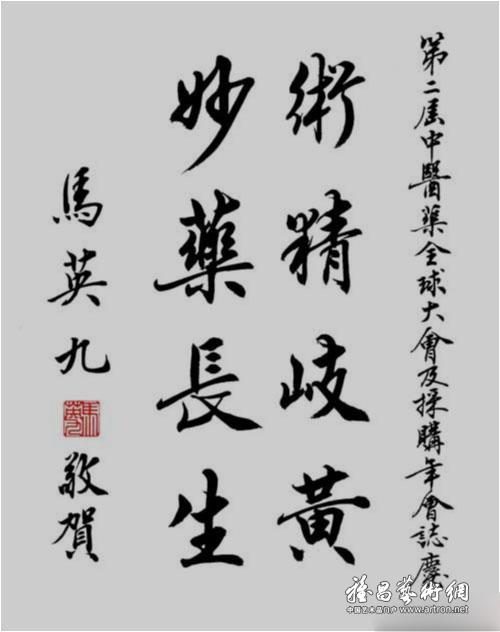 第二屆中醫藥全球大會及採購年會誌慶
術精岐黃
妙藥長生
馬英九
敬賀
雅昌藝術網
中国艺术品门户 www.artron.net